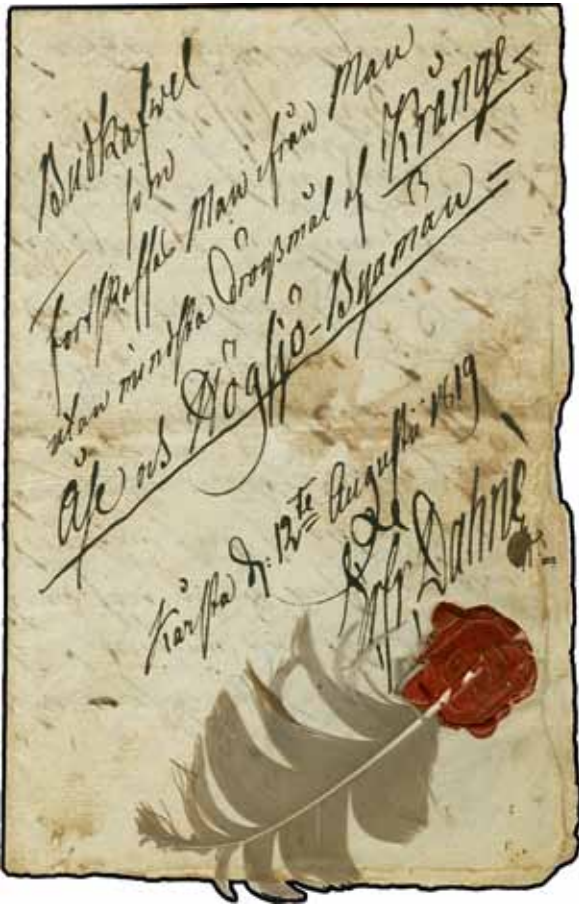 Budkafwel
som
Fortskaffas Man ifrån Man
utan mindsta drögsmål af Krånge-
Åse och Högsjö-Byamän =
Kärsta d: 12te Augustii 1819
Dahne